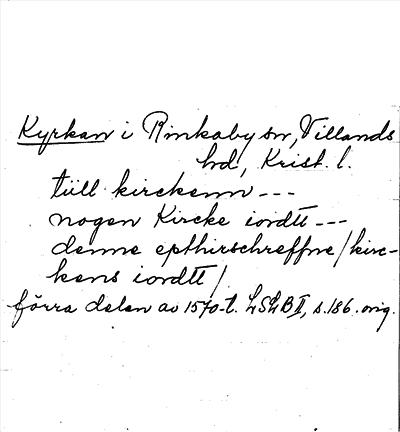 Kyrkan i Rinkaby sn, Villands
hd, Krist. l.
till kirckenn ---
nogen Kircke iordtt ---
denne epthirschreffne/kirc-
kens iordtt/
förra delen av 1570-t. LSLB II, s.186. orig.